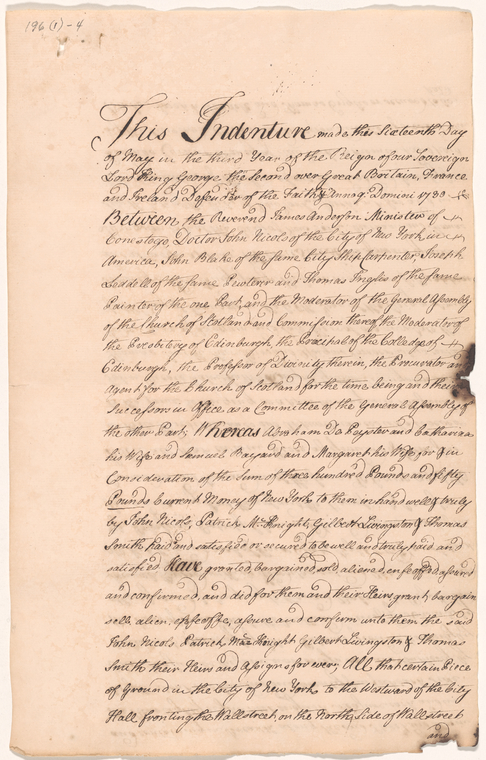 196 (1) - 4
This Indenture made this Sixteenth Day
of May in the third Year of the Reign of our Sovereign
Lord King George the Second over Great Britain, France
and Ireland Defender of the Faith & Annoq: Domini 1730
Between the Reverend James Anderson Minister of
Conestogo, Doctor John Nicols of the City of New York in
America, John Blake of the same City Shipcarpenter, Joseph
Leddell of the same Pewterer and Thomas Ingles of the same
Painter of the one Part, and the Moderator of the General Assembly
of the Church of Scotland and Commission thereof the Moderator of
the Presbitery of Edinburgh, the Principal of the Colledge of
Edinburgh, the Professor of Divinity therein, the Procurator and
Agent for the Church of Scotland for the time being and their
Successors in Office as a Committee of the General Assembly of
the other Part; Whereas Abraham De Peyster and Catharina
his Wife and Samuel Bayard and Margaret his Wife for & in
Consideration of the Sum of three hundred Pounds and fifty
Pounds Current Money of New York to them in hand well & truly
by John Nicols, Patrick Mac Knight, Gilbert Livingston & Thomas
Smith paid and satisfied or secured to be well and truly paid and
satisfied, Have granted, bargained, sold, aliened, enfeoffed, assured
and confirmed, and did for them and their Heirs grant, bargain
sell, alien, enfeoffe, assure and confirm unto them the said
John Nicols Patrick Mac Knight Gilbert Livingston & Thomas
Smith their Heirs and Assigns for ever, All that certain Piece
of Ground in the City of New York to the Westward of the City
Hall fronting the Wall street on the North Side of Wall street
and